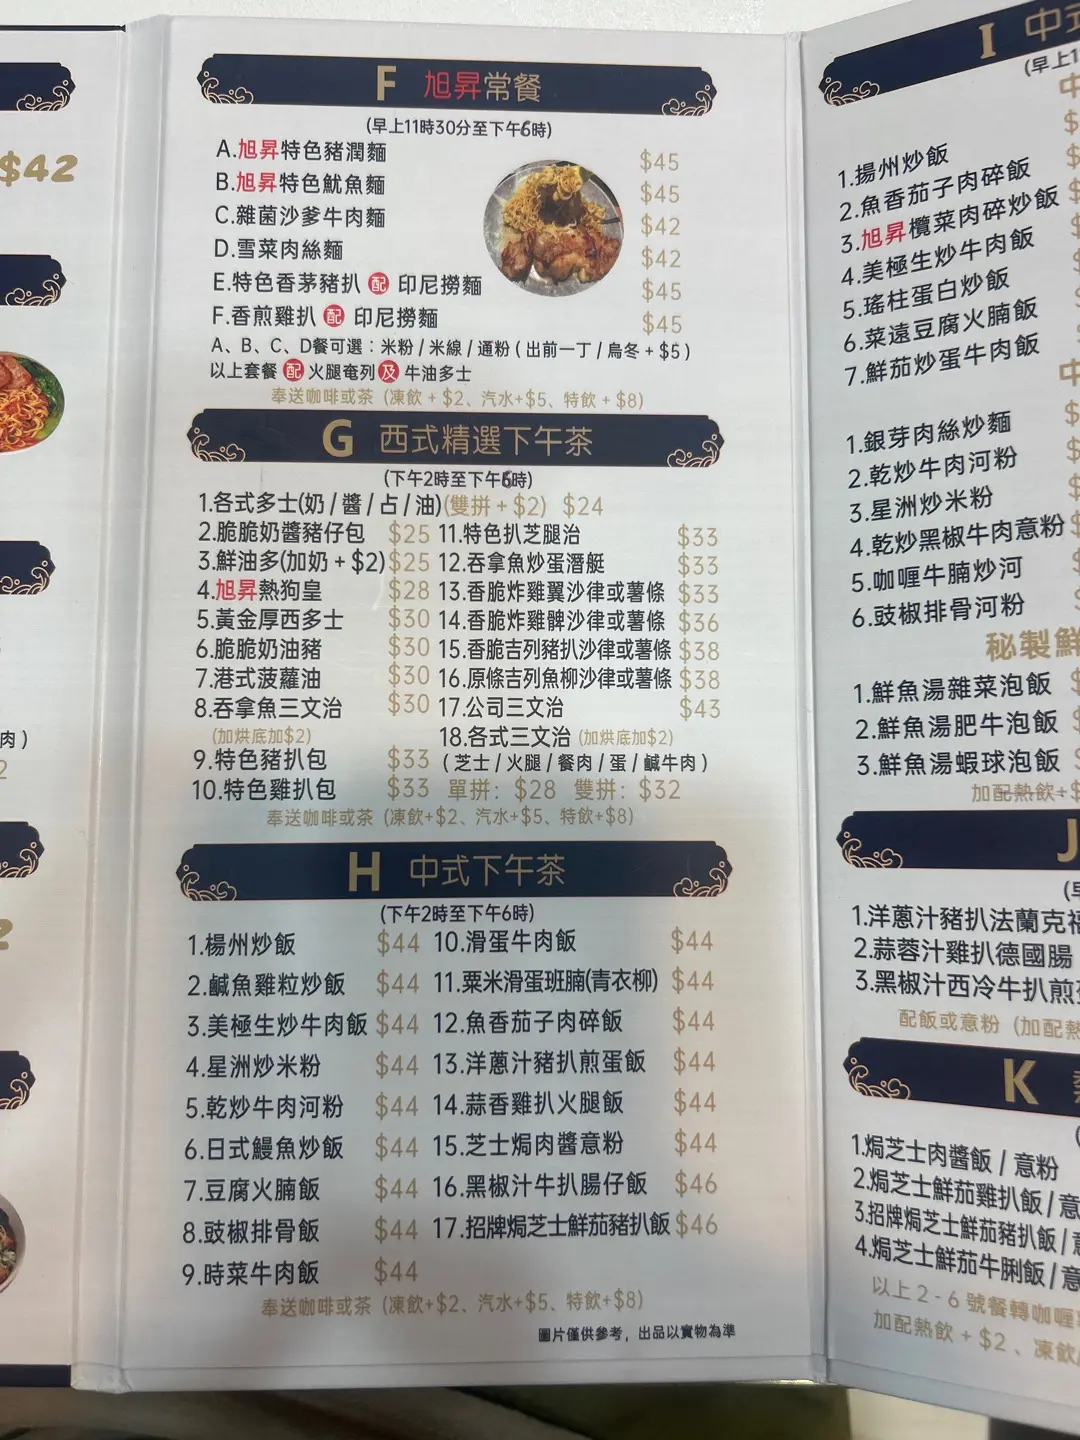 $42
肉）
2
2
F 旭昇常餐
(早上11時30分至下午6時)
A.旭昇特色豬潤麵 $45
B.旭昇特色魷魚麵 $45
C.雜菌沙爹牛肉麵 $42
D.雪菜肉絲麵 $42
E.特色香茅豬扒 配 印尼撈麵 $45
F.香煎雞扒 配 印尼撈麵 $45
A、B、C、D餐可選：米粉 / 米線 / 通粉 ( 出前一丁 / 烏冬 + $5 )
以上套餐 配 火腿奄列 及 牛油多士
奉送咖啡或茶 (凍飲 + $2、汽水+$5、特飲 + $8)
G 西式精選下午茶
(下午2時至下午6時)
1.各式多士(奶 / 醬 / 占 / 油)(雙拼 + $2) $24
2.脆脆奶醬豬仔包 $25 11.特色扒芝腿治 $33
3.鮮油多(加奶 + $2) $25 12.吞拿魚炒蛋潛艇 $33
4.旭昇熱狗皇 $28 13.香脆炸雞翼沙律或薯條 $33
5.黃金厚西多士 $30 14.香脆炸雞髀沙律或薯條 $36
6.脆脆奶油豬 $30 15.香脆吉列豬扒沙律或薯條 $38
7.港式菠蘿油 $30 16.原條吉列魚柳沙律或薯條 $38
8.吞拿魚三文治 $30 17.公司三文治 $43
(加烘底加$2) 18.各式三文治 (加烘底加$2)
9.特色豬扒包 $33 ( 芝士 / 火腿 / 餐肉 / 蛋 / 鹹牛肉 )
10.特色雞扒包 $33 單拼：$28 雙拼：$32
奉送咖啡或茶 (凍飲+$2、汽水+$5、特飲+$8)
H 中式下午茶
(下午2時至下午6時)
1.楊州炒飯 $44 10.滑蛋牛肉飯 $44
2.鹹魚雞粒炒飯 $44 11.粟米滑蛋班腩(青衣柳) $44
3.美極生炒牛肉飯 $44 12.魚香茄子肉碎飯 $44
4.星洲炒米粉 $44 13.洋蔥汁豬扒煎蛋飯 $44
5.乾炒牛肉河粉 $44 14.蒜香雞扒火腿飯 $44
6.日式鰻魚炒飯 $44 15.芝士焗肉醬意粉 $44
7.豆腐火腩飯 $44 16.黑椒汁牛扒腸仔飯 $46
8.豉椒排骨飯 $44 17.招牌焗芝士鮮茄豬扒飯 $46
9.時菜牛肉飯 $44
奉送咖啡或茶 (凍飲+$2、汽水+$5、特飲+$8)
圖片僅供參考，出品以實物為準
I 中式
(早上1
中
$
1.揚州炒飯 $
2.魚香茄子肉碎飯 $
3.旭昇欖菜肉碎炒飯 $
4.美極生炒牛肉飯
5.瑤柱蛋白炒飯
6.菜遠豆腐火腩飯
7.鮮茄炒蛋牛肉飯
中
1.銀芽肉絲炒麵 $
2.乾炒牛肉河粉 $
3.星洲炒米粉 $
4.乾炒黑椒牛肉意粉 $
5.咖喱牛腩炒河
6.豉椒排骨河粉
秘製鮮
1.鮮魚湯雜菜泡飯 $
2.鮮魚湯肥牛泡飯 $
3.鮮魚湯蝦球泡飯
加配熱飲+$
J
1.洋蔥汁豬扒法蘭克福
2.蒜蓉汁雞扒德國腸
3.黑椒汁西冷牛扒煎
配飯或意粉 (加配熱
K
1.焗芝士肉醬飯 / 意粉
2.焗芝士鮮茄雞扒飯 / 意
3.招牌焗芝士鮮茄豬扒飯 /
4.焗芝士鮮茄牛脷飯 / 意
以上 2 - 6 號餐轉咖喱
加配熱飲 + $2 、凍飲